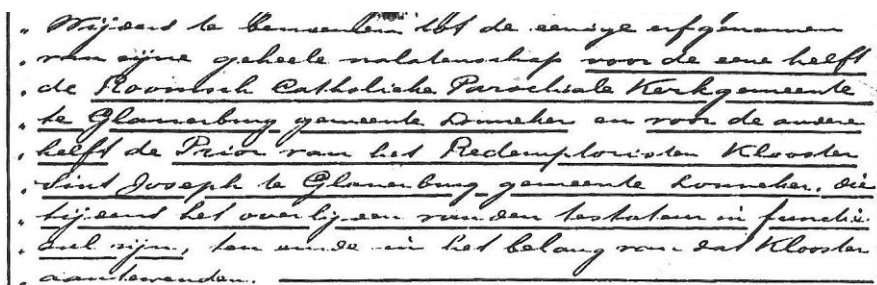 „ Wijders te benoemen tot de eenige erfgenamen
„ van zijne geheele nalatenschap voor de eene helft
„ de Roomsch Catholieke Parochiale Kerkgemeente
„ te Glanerbrug gemeente Lonneker en voor de andere
„ helft de Prior van het Redemptoristen Klooster
„ Sint Joseph te Glanerbrug gemeente Lonneker, die
„ tijdens het overlijden van den testateur in functie
„ zal zijn, ten einde in het belang van dat Klooster
„ aantewenden.